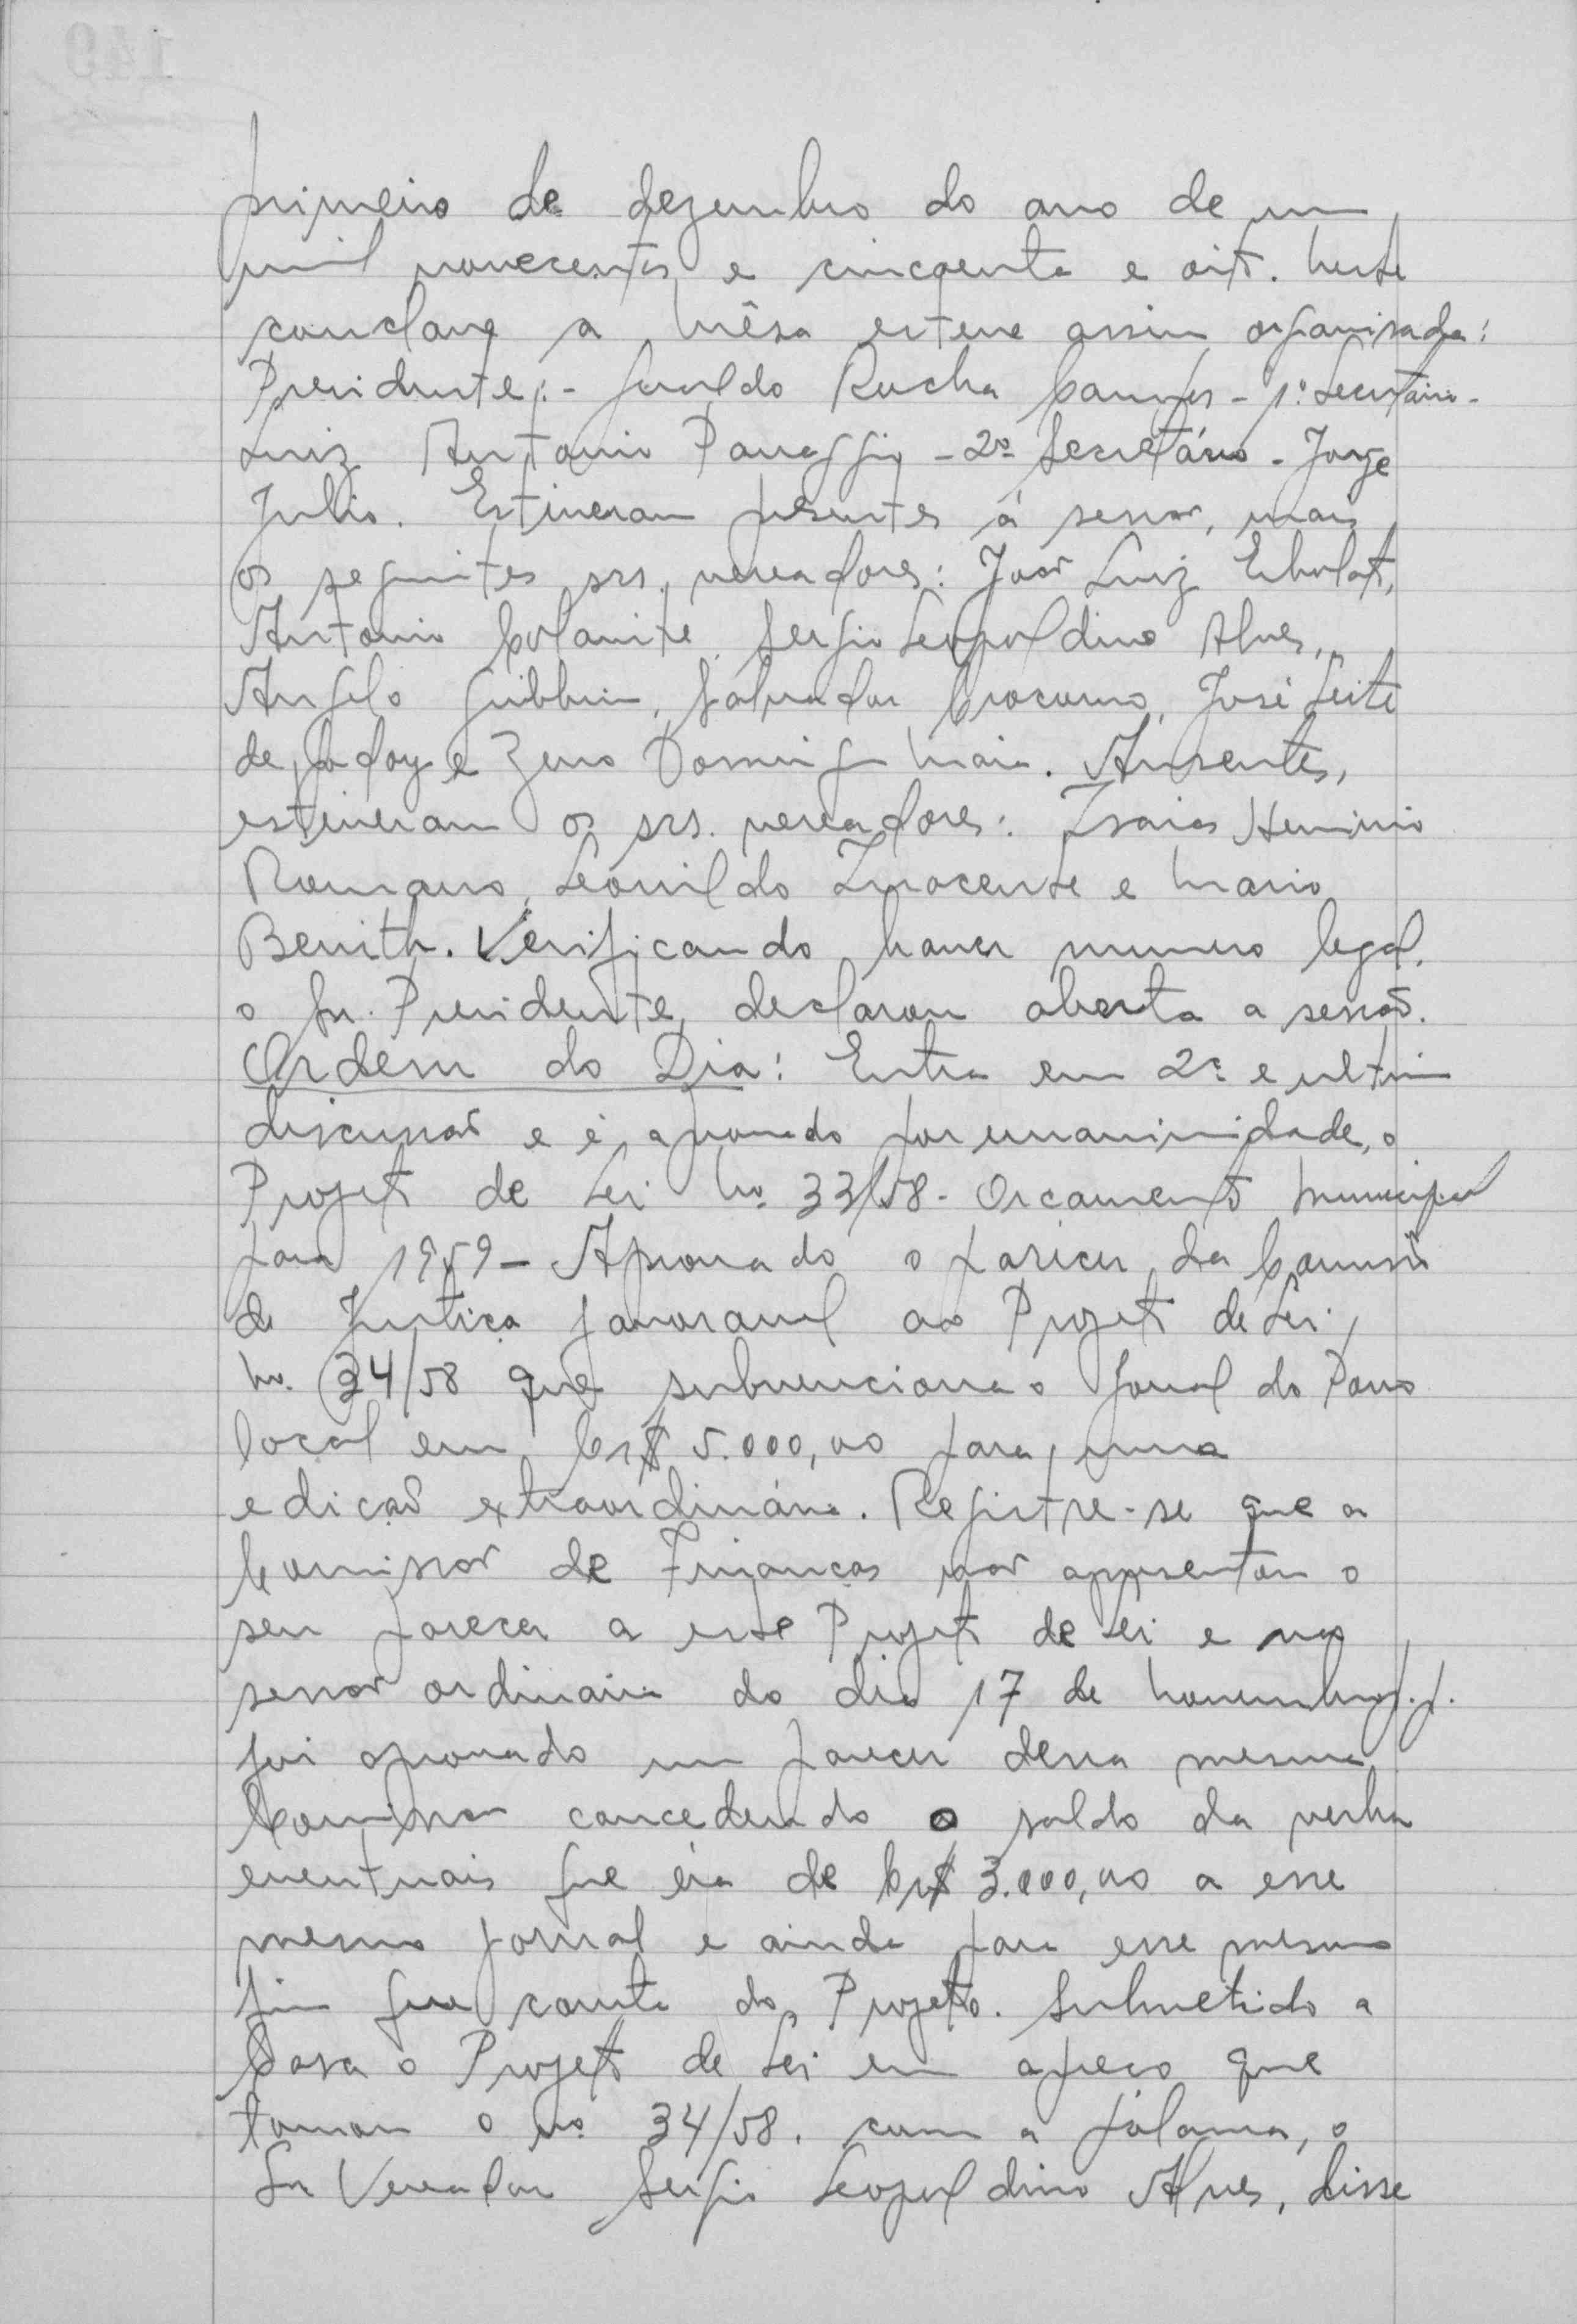 primeiro de dezembro do ano de um
mil novecentos e cincoenta e oito. Neste
conclave a Mêsa esteve assim organisada:
Presidente:- Geraldo Rocha Campos - 1º Secretário -
Luiz Antonio Panaggio - 2º Secretário - Jorge
Julio. Estiveram presentes á sessão, mais
os seguintes srs. vereadores: João Luiz
Antonio Colamite, Sergio Leopoldino Alves,
Angelo Gibbin, Salvador Crocomo, José Leite
de Godoy e Zeno Domingu Maia. Ausentes,
estiveram os srs. vereadores: Isaias Herminio
Romano, Leonildo Inocente e Mario
Benith. Verificando haver numero legal,
o Sr. Presidente, declarou aberta a sessão.
Ordem do Dia: Entra em 2ª e ultima
discussão e é aprovado por unanimidade, o
Projeto de Lei nº 33/58 - Orcamento Municipal
para 1959 - Aprovado o parecer da Comissão
de Justiça favoravel ao Projeto de Lei,
nº 34/58 que subvenciona o Jornal do Povo
local em Cr$ 5.000,00 para uma
edicão extraordinária. Registre-se que a
Comissão de Financas não apresentou o
seu parecer a este Projeto de Lei e na
sessão ordinaria do dia 17 de novembro p.p.
foi aprovado um parecer dessa mesma
Comissão concedendo o saldo da verba
eventuais que éra de Cr$ 3.000,00 a esse
mesmo jornal e ainda para esse mesmo
fim que consta do Projeto. Submetido a
Casa o Projeto de Lei em apreco que
tomou o nº 34/58, com a palavra, o
Sr Vereador Sergio Leopoldino Alves, disse